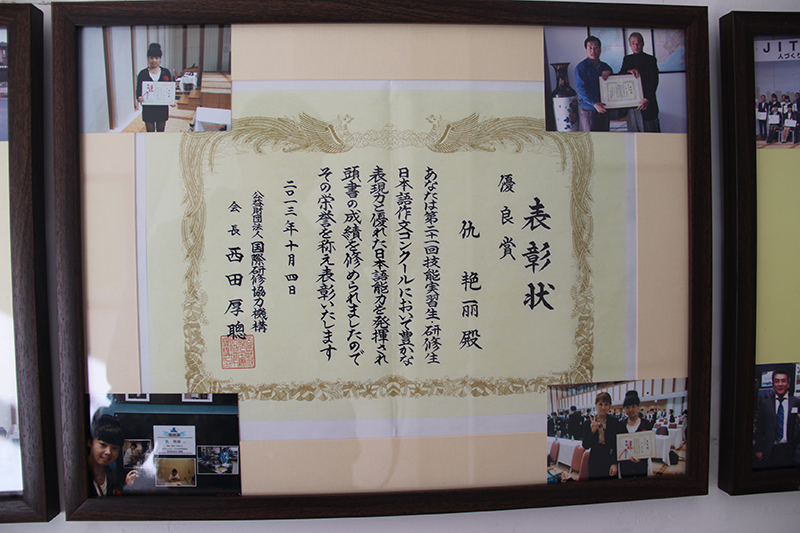 表彰状
優良賞
仇艳丽殿
あなたは第二十一回技能実習生・研修生
日本語作文コンクールにおいて豊かな
表現力と優れた日本語能力を発揮され
頭書の成績を修められましたので
その栄誉を称え表彰いたします
二〇一三年十月四日
公益財団法人国際研修協力機構
会長西田厚聰
JIT
人づく